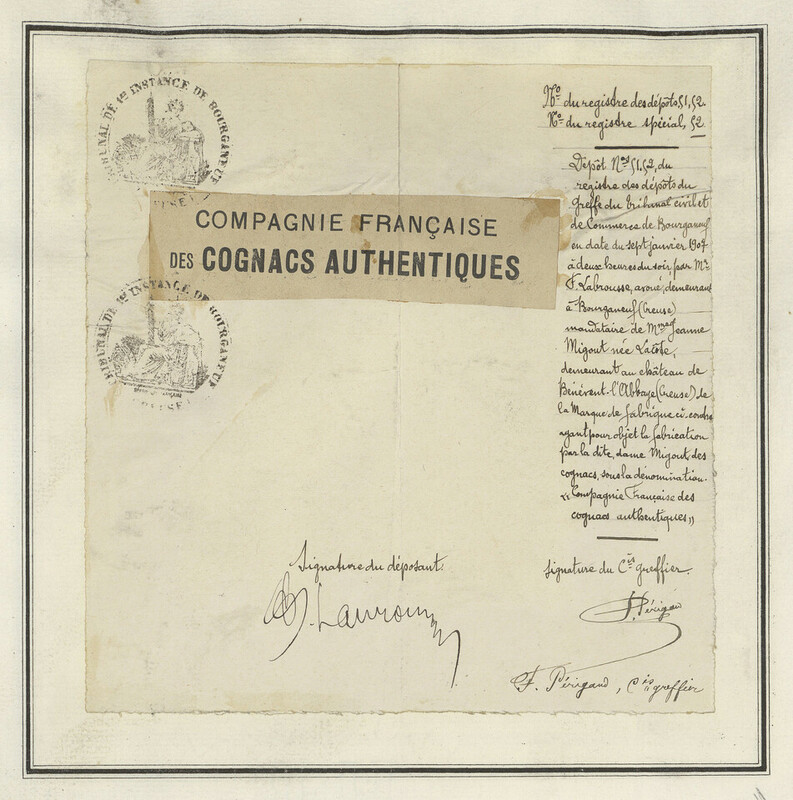 TRIBUNAL DE 1ère INSTANCE DE BOURGANEUF
COMPAGNIE FRANÇAISE
DES COGNACS AUTHENTIQUES
TRIBUNAL DE 1ère INSTANCE DE BOURGANEUF
(CREUSE)
No du registre des dépôts 51.52.
No du registre spécial, 52.
Dépôt Nos 51.52, du
registre des dépôts du
greffe du tribunal civil et
de Commerce de Bourganeuf
en date du sept janvier 1907
à deux heures du soir, par Me
F. Labrousse, avoué, demeurant
à Bourganeuf (Creuse)
mandataire de Mme Jeanne
Migout née
demeurant au château de
Bénévent-l'Abbaye (Creuse) de
la Marque de fabrique ci-contre
ayant pour objet la fabrication
par la dite, dame Migout, des
cognacs, sous la dénomination.
"Compagnie Française des
cognacs authentiques"
Signature du déposant
Signature du Cis greffier.
F. Périgaud
F. Périgaud, Cis greffier